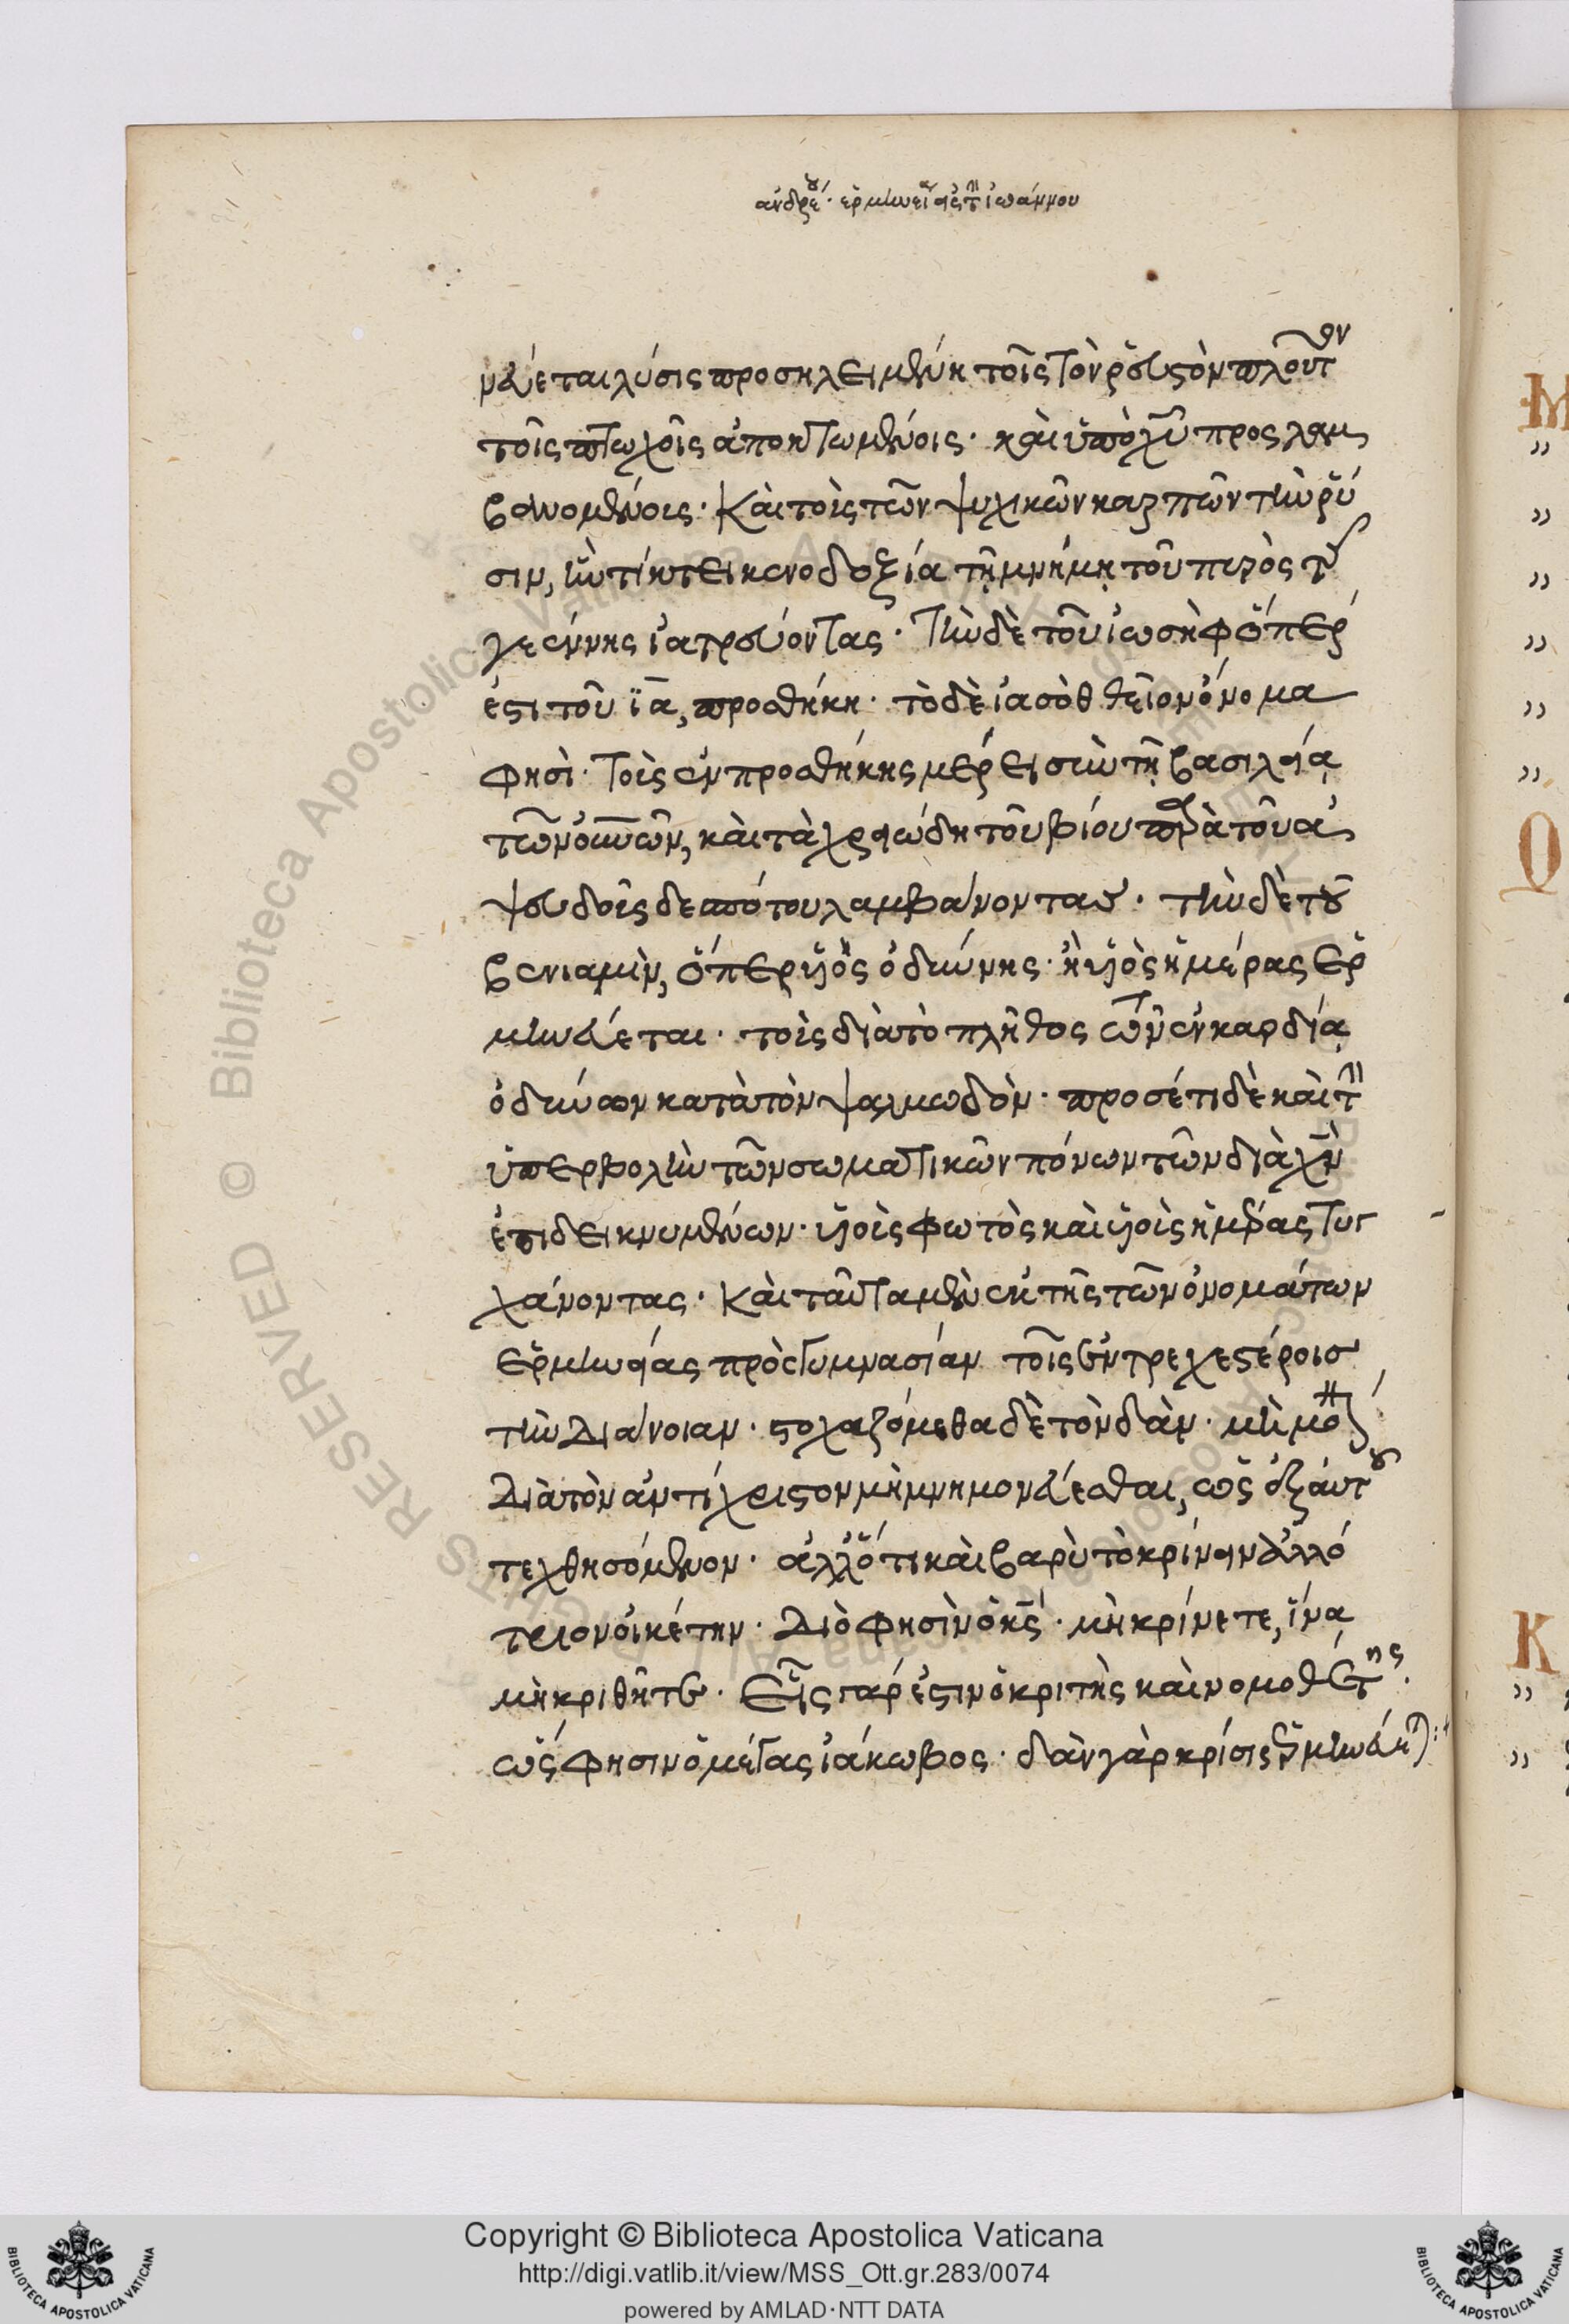 ἀνδρέου ἑρμηνεία εἰς τὴν ἰωάννου
νεύεται λύσις προσηλειμμένη τοῖς τὸν ῥευστὸν πλοῦτον
τοῖς πτωχοῖς ἀποκτωμένοις· καὶ ὑπὸ χυ προσλαμ
βανομένοις· καὶ τοῖς τῶν ψυχικῶν καρπῶν τὴν ῥύ
σιν, ἣν τίκτει κενοδοξία τῇ μνήμῃ τοῦ πυρὸς τῆς
γεέννης ἰατρεύοντας· τὴν δὲ τοῦ ἰωσὴφ ὅπερ
ἐστι τοῦ ϊα, προσθήκη· τὸ δὲ ἰασὸθ θεῖον ὄνομα
φησὶ· τοῖς ἐν προσθήκης μέρει σὺν τῇ βασιλείᾳ
τῶν οὐνῶν, καὶ τὰ χρειώδη τοῦ βίου παρὰ τοῦ ἀ
ψευδοῖς δεσπότου λαμβάνοντας· τὴν δὲ τοῦ
βενιαμὶν, ὅπερ υἱὸς ὀδύνης· ἢ υἱὸς ἡμέρας ἑρ
μηνεύεται· τοῖς διὰ τὸ πλῆθος τῶν ἐν καρδίᾳ
ὀδυνῶν κατὰ τὸν ψαλμωδὸν· προσέτι δὲ καὶ τὴν
ὑπερβολὴν τῶν σωματικῶν πόνων τῶν διὰ χν
ἐπιδεικνυμένων· υἱοῖς φωτὸς καὶ υἱοῖς ἡμέρας τυγ
χάνοντας· καὶ ταῦτα μὲν ἐκ τῆς τῶν ὀνομάτων
ἑρμηνείας πρὸς γυμνασίαν τοῖς ἐντρεχεστέροισ
τὴν διάνοιαν· στοχαζόμεθα δὲ τὸν δὰν· μὴ μόνον
διὰ τὸν ἀντίχριστον μὴ μνημονεύεσθαι, ὡς ἐξ αὐτοῦ
τεχθησόμενον· ἀλλ' ὅτι καὶ βαρὺ τὸ κρίνειν ἀλλό
τριον οἰκέτην· διὸ φησὶν ὁ κς· μὴ κρίνετε, ἵνα
μὴ κριθῆτε· εἷς γάρ ἐστιν ὁ κριτὴς καὶ νομοθέτης·
ὥς φησιν ὁ μέγας ἰάκωβος· δὰν γὰρ κρίσις ἑρμηνεύεται:
Copyright © Biblioteca Apostolica Vaticana
http://digi.vatlib.it/view/MSS_Ott.gr.283/0074
powered by AMLAD·NTT DATA